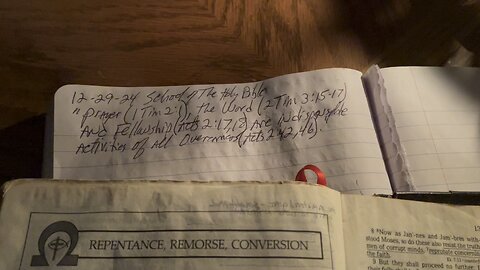 12-29-24 School of The Holy Bible
"Prayer (1 Tim 2:1), the Word (2 Tim 3:15-17)
And Fellowship (Acts 2:17,18) Are Indispensable
Activities of All Overcomers (Acts 2:42,46)
REPENTANCE, REMORSE, CONVERSION
8 Now as Jan-nes and Jam-bres with-
stood Moses, so do these also resist the truth:
men of corrupt minds, reprobate concerning
the faith.
9 But they shall proceed no further: